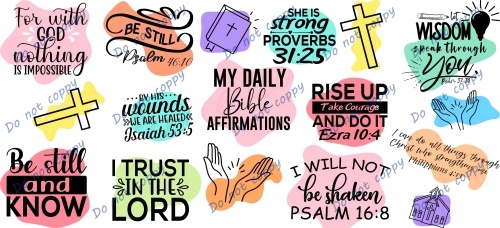 For with
GOD
nothing
IS IMPOSSIBLE
BE STILL
Psalm 46:10
SHE IS
strong
PROVERBS
31:25
let
WISDOM
speak through
You
MY DAILY
Bible
AFFIRMATIONS
BY HIS
wounds
WE ARE HEALED
Isaiah 53:5
RISE UP
Take Courage
AND DO IT
Ezra 10:4
I can do all things through
Christ who strengthens me
Philippians 4:13
Be still
and
KNOW
I TRUST
IN THE
LORD
I WILL NOT
be shaken
PSALM 16:8
Do not coppy
Do not coppy
Do not coppy
Do not coppy
Do not coppy
Do not coppy
Do not coppy